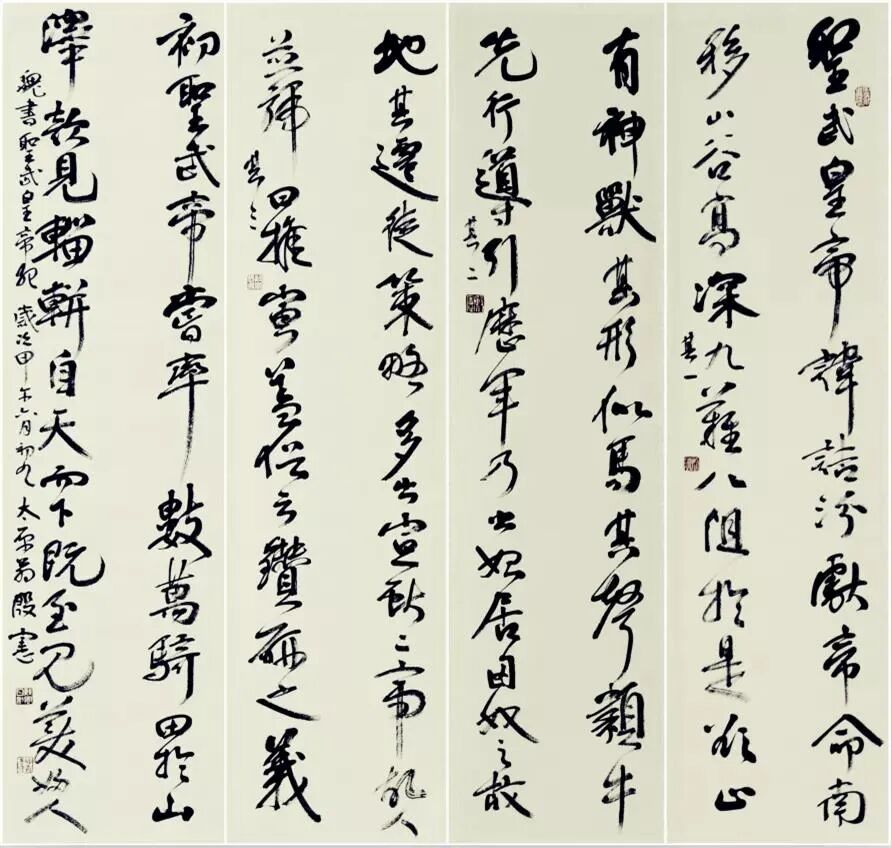 聖武皇帝諱詰汾獻帝命南
移山谷高深九難八阻於是欲止
其一
有神獸其形似馬其聲類牛
先行導引歷年乃出始居匈奴之故
其二
地其遷徙策略多出宣獻二帝故人
並號曰推寅蓋俗云鑽研之義
其三
初聖武帝嘗率數萬騎田於山
澤欻見輜軿自天而下既至見美婦人
魏書聖武皇帝紀 歲次甲午六月初九 太原翁殷憲